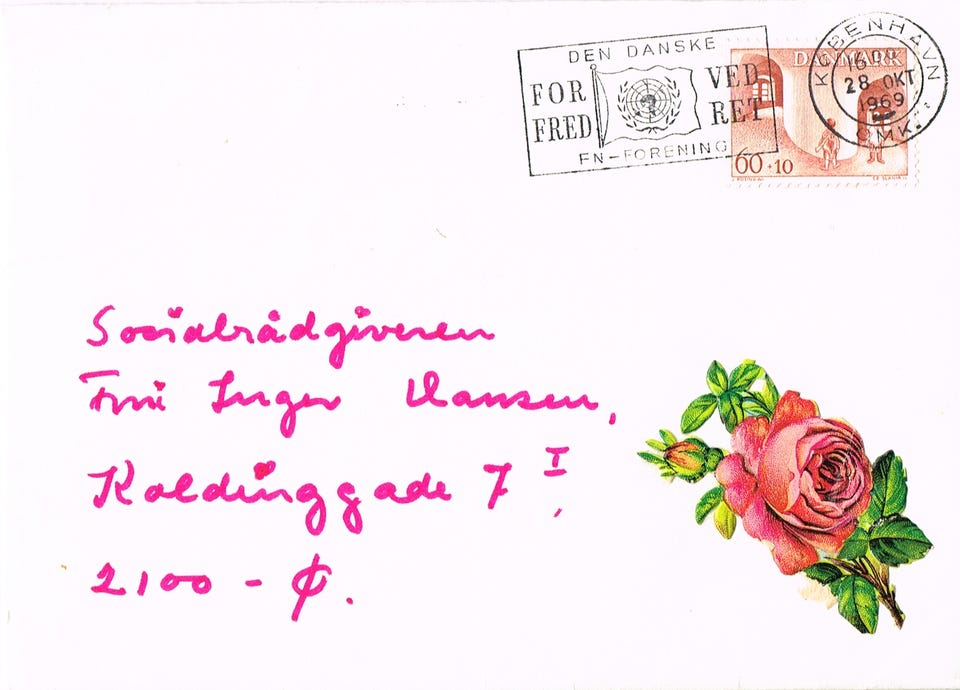 DEN DANSKE
FOR FRED VED RET
FN-FORENING
KØBENHAVN
28 OKT
1969
OMK.
DANMARK
60+10
Socialrådgiveren
Inger Hansen,
Koldinggade 7 I,
2100 - Ø.